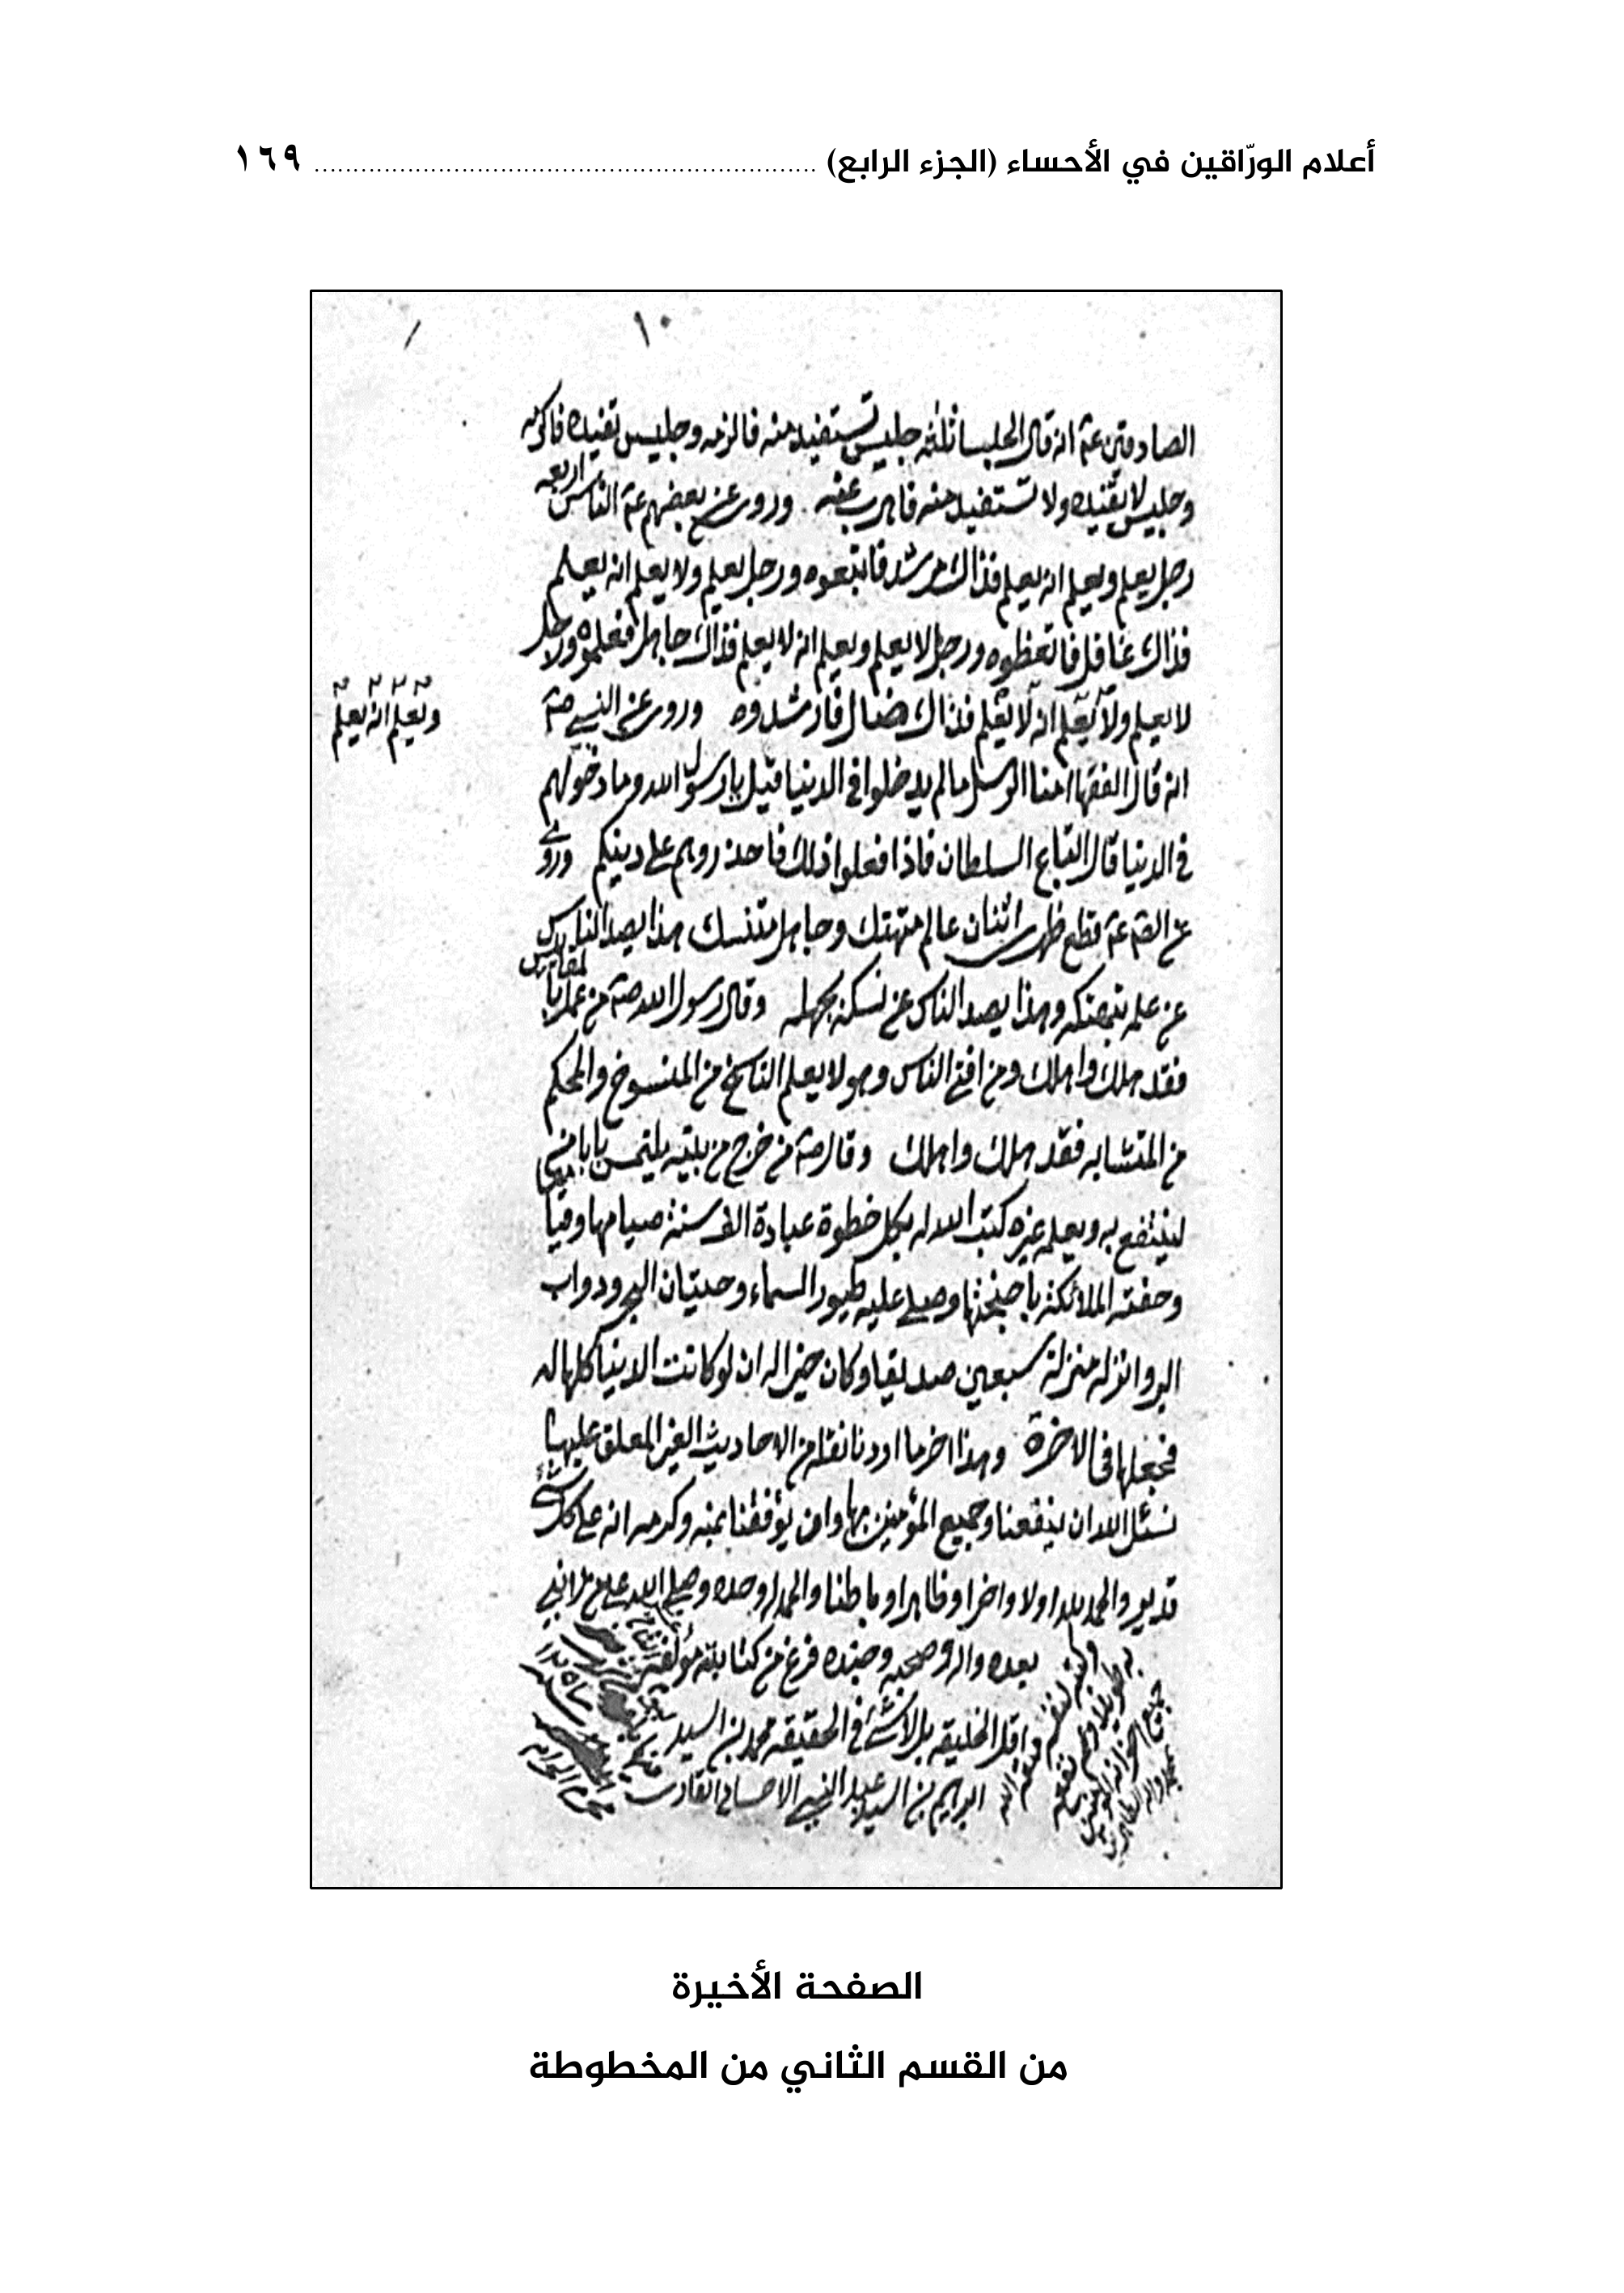 أعلام الورّاقين في الأحساء (الجزء الرابع) ١٦٩
١٠
الصادقين عـ انه قال الجلسا ثلثه جليس تستفيد منه فالزمه وجليس تفيده فاكرمه
وجليس لا تفيده ولا تستفيد منه فاهرب عنه وروى عن بعضهم عـ الناس اربعه
رجل يعلم ويعلم انه يعلم فذاك مرشد فاتبعوه ورجل يعلم ولا يعلم انه يعلم
فذاك غافل فايقظوه ورجل لا يعلم ويعلم انه لا يعلم فذاك جاهل فعلموه ورجل
لا يعلم ولا يعلم انه لا يعلم فذاك ضال فارشدوه وروى عن النبي صـ
ويعلم انه يعلم
انه قال الفقها امنا الرسل مالم يدخلوا في الدنيا قيل يا رسول الله وما دخولهم
في الدنيا قال اتباع السلطان فاذا فعلوا ذلك فاحذروهم على دينكم وروى
عن عـ قطع ظهرى اثنان عالم متهتك وجاهل متنسك هذا يصد الناس
عن علمه بتهتكه وهذا يصد الناس عن نسكه بجهله وقال رسول الله صـ من عمل بالمقاييس
فقد هلك واهلك ومن افتى الناس وهو لا يعلم الناسخ من المنسوخ والمحكم
من المتشابه فقد هلك واهلك وقال صـ من خرج من بيته يلتمس بابا من
لينتفع به ويعلمه غيره كتب الله له بكل خطوة عبادة الف سنة صيامها وقيامها
وحفته الملائكة باجنحتها وصلى عليه طيور السماء وحيتان البحر ودواب
البر وانزله منزلة سبعين صديقا وكان خيرا له ان لو كانت الدنيا كلها له
فجعلها في الاخرة وهذا اخر ما اردنا نقله من الاحاديث الغير المعلق عليها
نسئل الله ان ينفعنا وجميع المؤمنين بها وان يوفقنا بمنه وكرمه انه على كل شئ
قدير والحمد لله اولا واخرا وظاهرا وباطنا والحمد لله وحده وصلى الله على من لا نبي
بعده واله وصحبه وجنده فرغ من كتابته مؤلفه
اقل الخليقه بل لا شئ في الحقيقه محمد بن السيد
ابراهيم بن السيد عبد النبي الاحسائي القارى
الصفحة الأخيرة
من القسم الثاني من المخطوطة